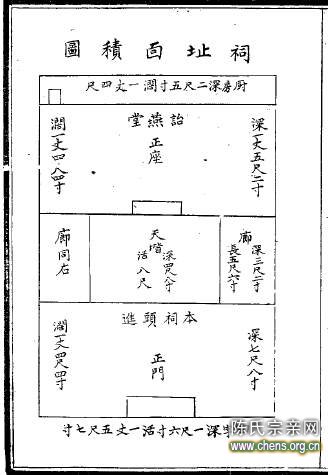 祠址靣積圖
厨房深二尺五寸濶一丈四尺
詒燕堂
正座
深一丈五尺二寸
濶一丈四尺四寸
廊
深三尺二寸
長五尺六寸
天階
深四尺八寸
活八尺
廊同右
本祠頭進
正門
深七尺八寸
濶一丈四尺四寸
深一尺六寸活一丈五尺七寸
陈氏宗亲网
www.chens.org.cn